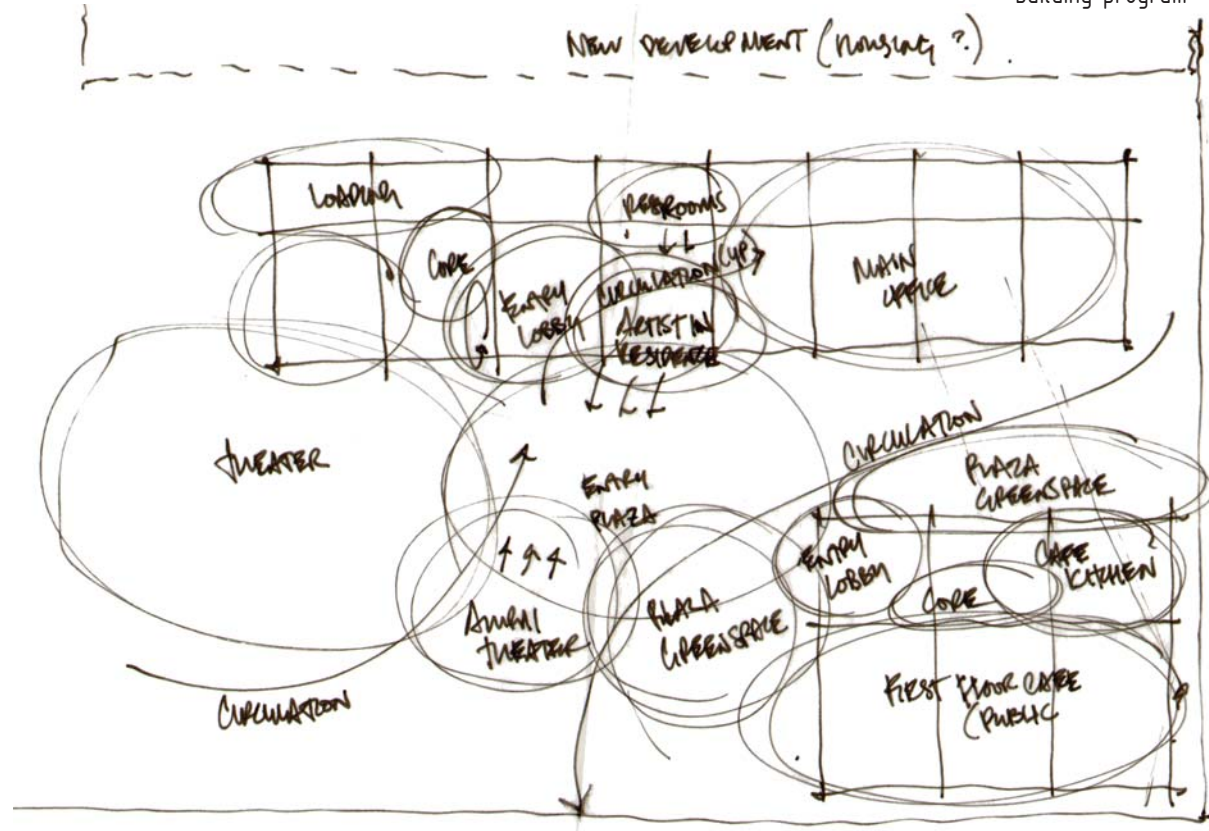 building program
NEW DEVELOPMENT (HOUSING ?)
LOADING
RESTROOMS
CORE
ENTRY
LOBBY
CIRCULATION (UP)
ARTIST IN
RESIDENCE
MAIN
OFFICE
THEATER
ENTRY
PLAZA
CIRCULATION
PLAZA
GREENSPACE
ENTRY
LOBBY
CORE
CAFE
KITCHEN
THEATER
PLAZA
GREENSPACE
FIRST FLOOR CAFE
(PUBLIC
CIRCULATION